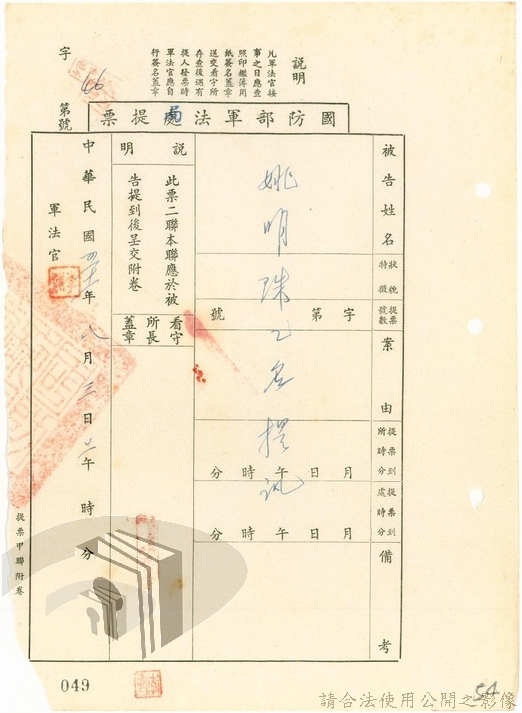 說明
凡軍法官按
事之日應查
照印鑑簿用
紙簽名蓋章
送交看守所
存查後遇有
提人發票時
軍法官應自
行簽名蓋章
字 第 號
46
國防部軍法處局提票
被告姓名
狀貌特徵
提票號數
字 第 號
案由
提票到所時分
月 日 午 時 分
提票到處時分
月 日 午 時 分
備考
姚明珠乙名提訊
說明
此票二聯本聯應於被
告提到後呈交附卷
看守所長蓋章
中華民國四十年八月三日上午 時 分
軍法官
提票甲聯附卷
049
54
請合法使用公開之影像